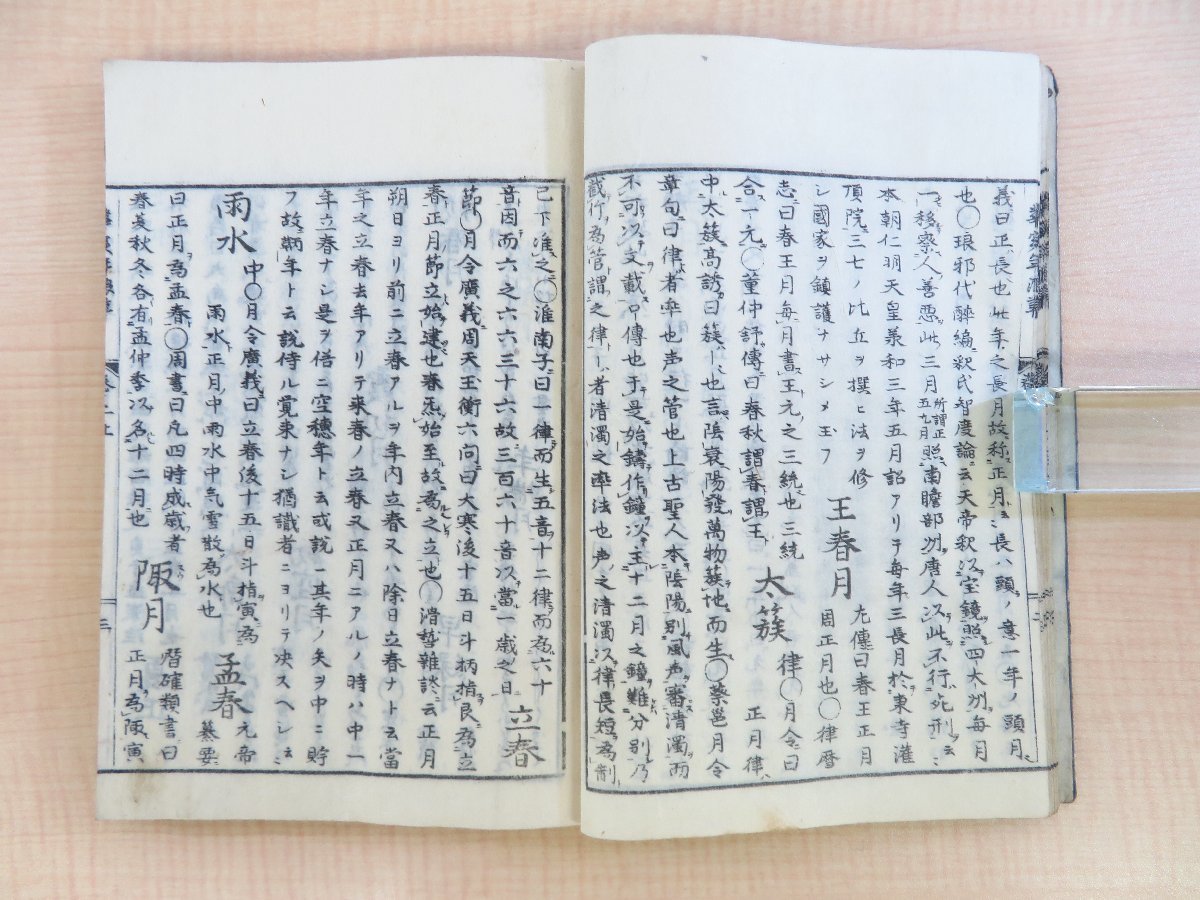 義曰正ハ長也此年之長月故称正月ト云長ハ頭ノ意一年ノ頭月
也〇琅邪代醉編釈氏智度論云天帝釈以宝鏡照四大州毎月
移察人善悪此三月所謂正五九月照南瞻部州唐人以此不行死刑ト云
本朝仁明天皇義和三年五月詔アリテ毎年三長月於東寺灌
頂院三七ノ比丘ヲ撰ヒ法ヲ修
シ國家ヲ鎮護ナサシメ玉フ
王春月
左傳曰春王正月
周正月也〇律暦
志曰春王月毎月書王元之三統也三統
合一元〇董仲舒傳曰春秋謂春謂王
太簇
律〇月令曰
正月律
中太簇高誘曰簇ハ也言陰衰陽發萬物蔟地而生〇蔡邕月令
章句曰律者率也声之管也上古聖人本陰陽別風声審清濁而
不可以文載口傳也于是始鑄作鐘以主十二月之鐘難分別乃
截竹為管謂之律ト者清濁之率法也声之清濁以律長短為制
已下准之〇淮南子曰一律而生五音十二律而為六十
音因而六之六六三十六故三百六十音以當一歳之日
立春
節〇月令廣義周天玉衡六問曰大寒後十五日斗柄指艮為立
春正月節立始建也春炁始至故為之立也〇消暫雜談云正月
朔日ヨリ前ニ立春アルヲ年内立春又ハ除日立春ナト云當
年之立春去年アリテ来春ノ立春又正月ニアルノ時ハ中一
年立春ナシ是ヲ俗ニ空穂年ト云或説ニ其年ノ矢ヲ中ニ貯
フ故靭年ト云説侍ル覚束ナシ猶識者ニヨリテ決スヘシト云
雨水
中〇月令廣義曰立春後十五日斗指寅為
雨水正月中雨水中気雪散為水也
孟春
元帝
纂要
曰正月為孟春〇周書曰凡四時成歳者
春夏秋冬各有孟仲季以名十二月也
陬月
暦確類書曰
正月為陬寅